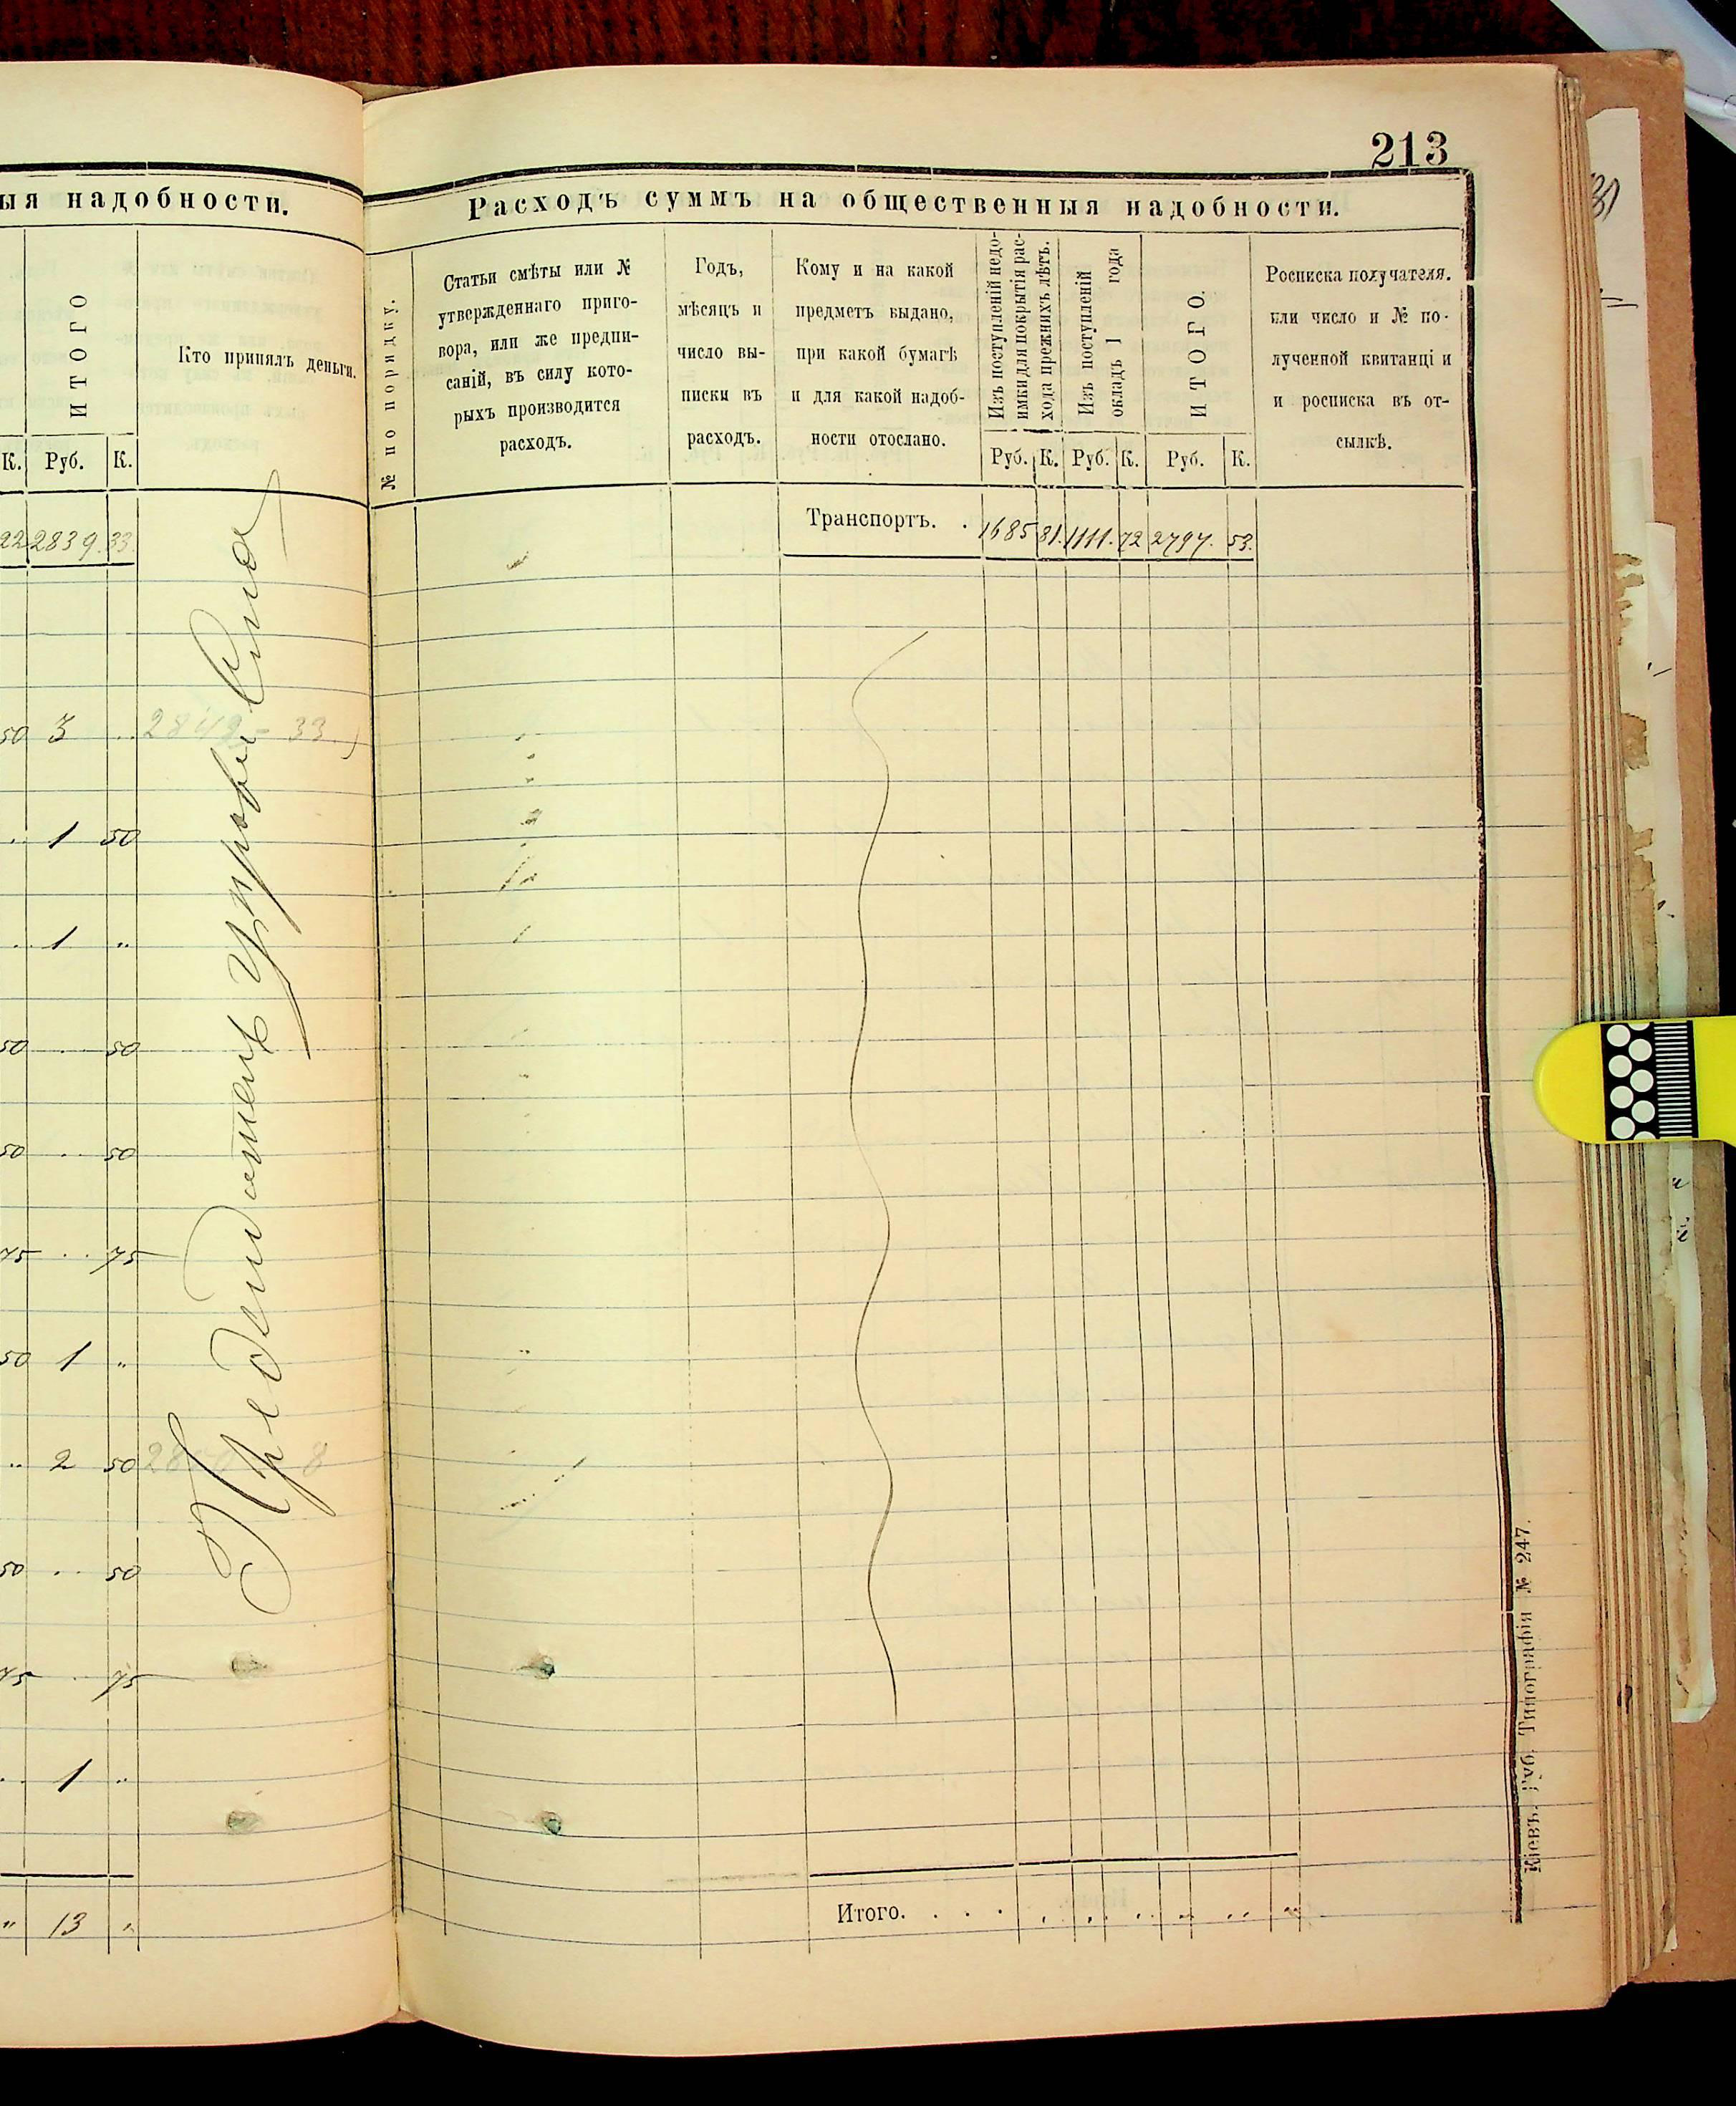 213
ыя надобности.
ИТОГО
Кто принялъ деньги.
К. Руб. К.
22 2839. 33.
50 3 ..
2842 - 33
.. 1 50
.. 1 "
50 .. 50
50 .. 50
75 .. 75
50 1 "
.. 2 50
50 .. 50
75 .. 75
.. 1 ..
" 13 "
Расходъ суммъ на общественныя надобности.
№ по порядку.
Статьи смѣты или №
утвержденнаго приго-
вора, или же предпи-
саній, въ силу кото-
рыхъ производится
расходъ.
Годъ,
мѣсяцъ и
число вы-
писки въ
расходъ.
Кому и на какой
предметъ выдано,
при какой бумагѣ
и для какой надоб-
ности отослано.
Изъ поступленій недо-
имки для покрытія рас-
хода прежнихъ лѣтъ.
Изъ поступленій
окладъ 1 года
ИТОГО.
Росписка получателя.
или число и № по-
лученной квитанціи
и росписка въ от-
сылкѣ.
Руб. К. Руб. К. Руб. К.
Транспортъ. . 1685 81. 1111. 72 2797. 53.
Итого. . . .
Кіевъ. Губ. Типографія № 247.